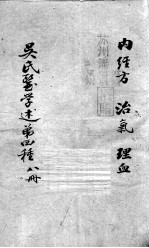 内经方 治氣 理血
吳氏醫学述第四種 八冊